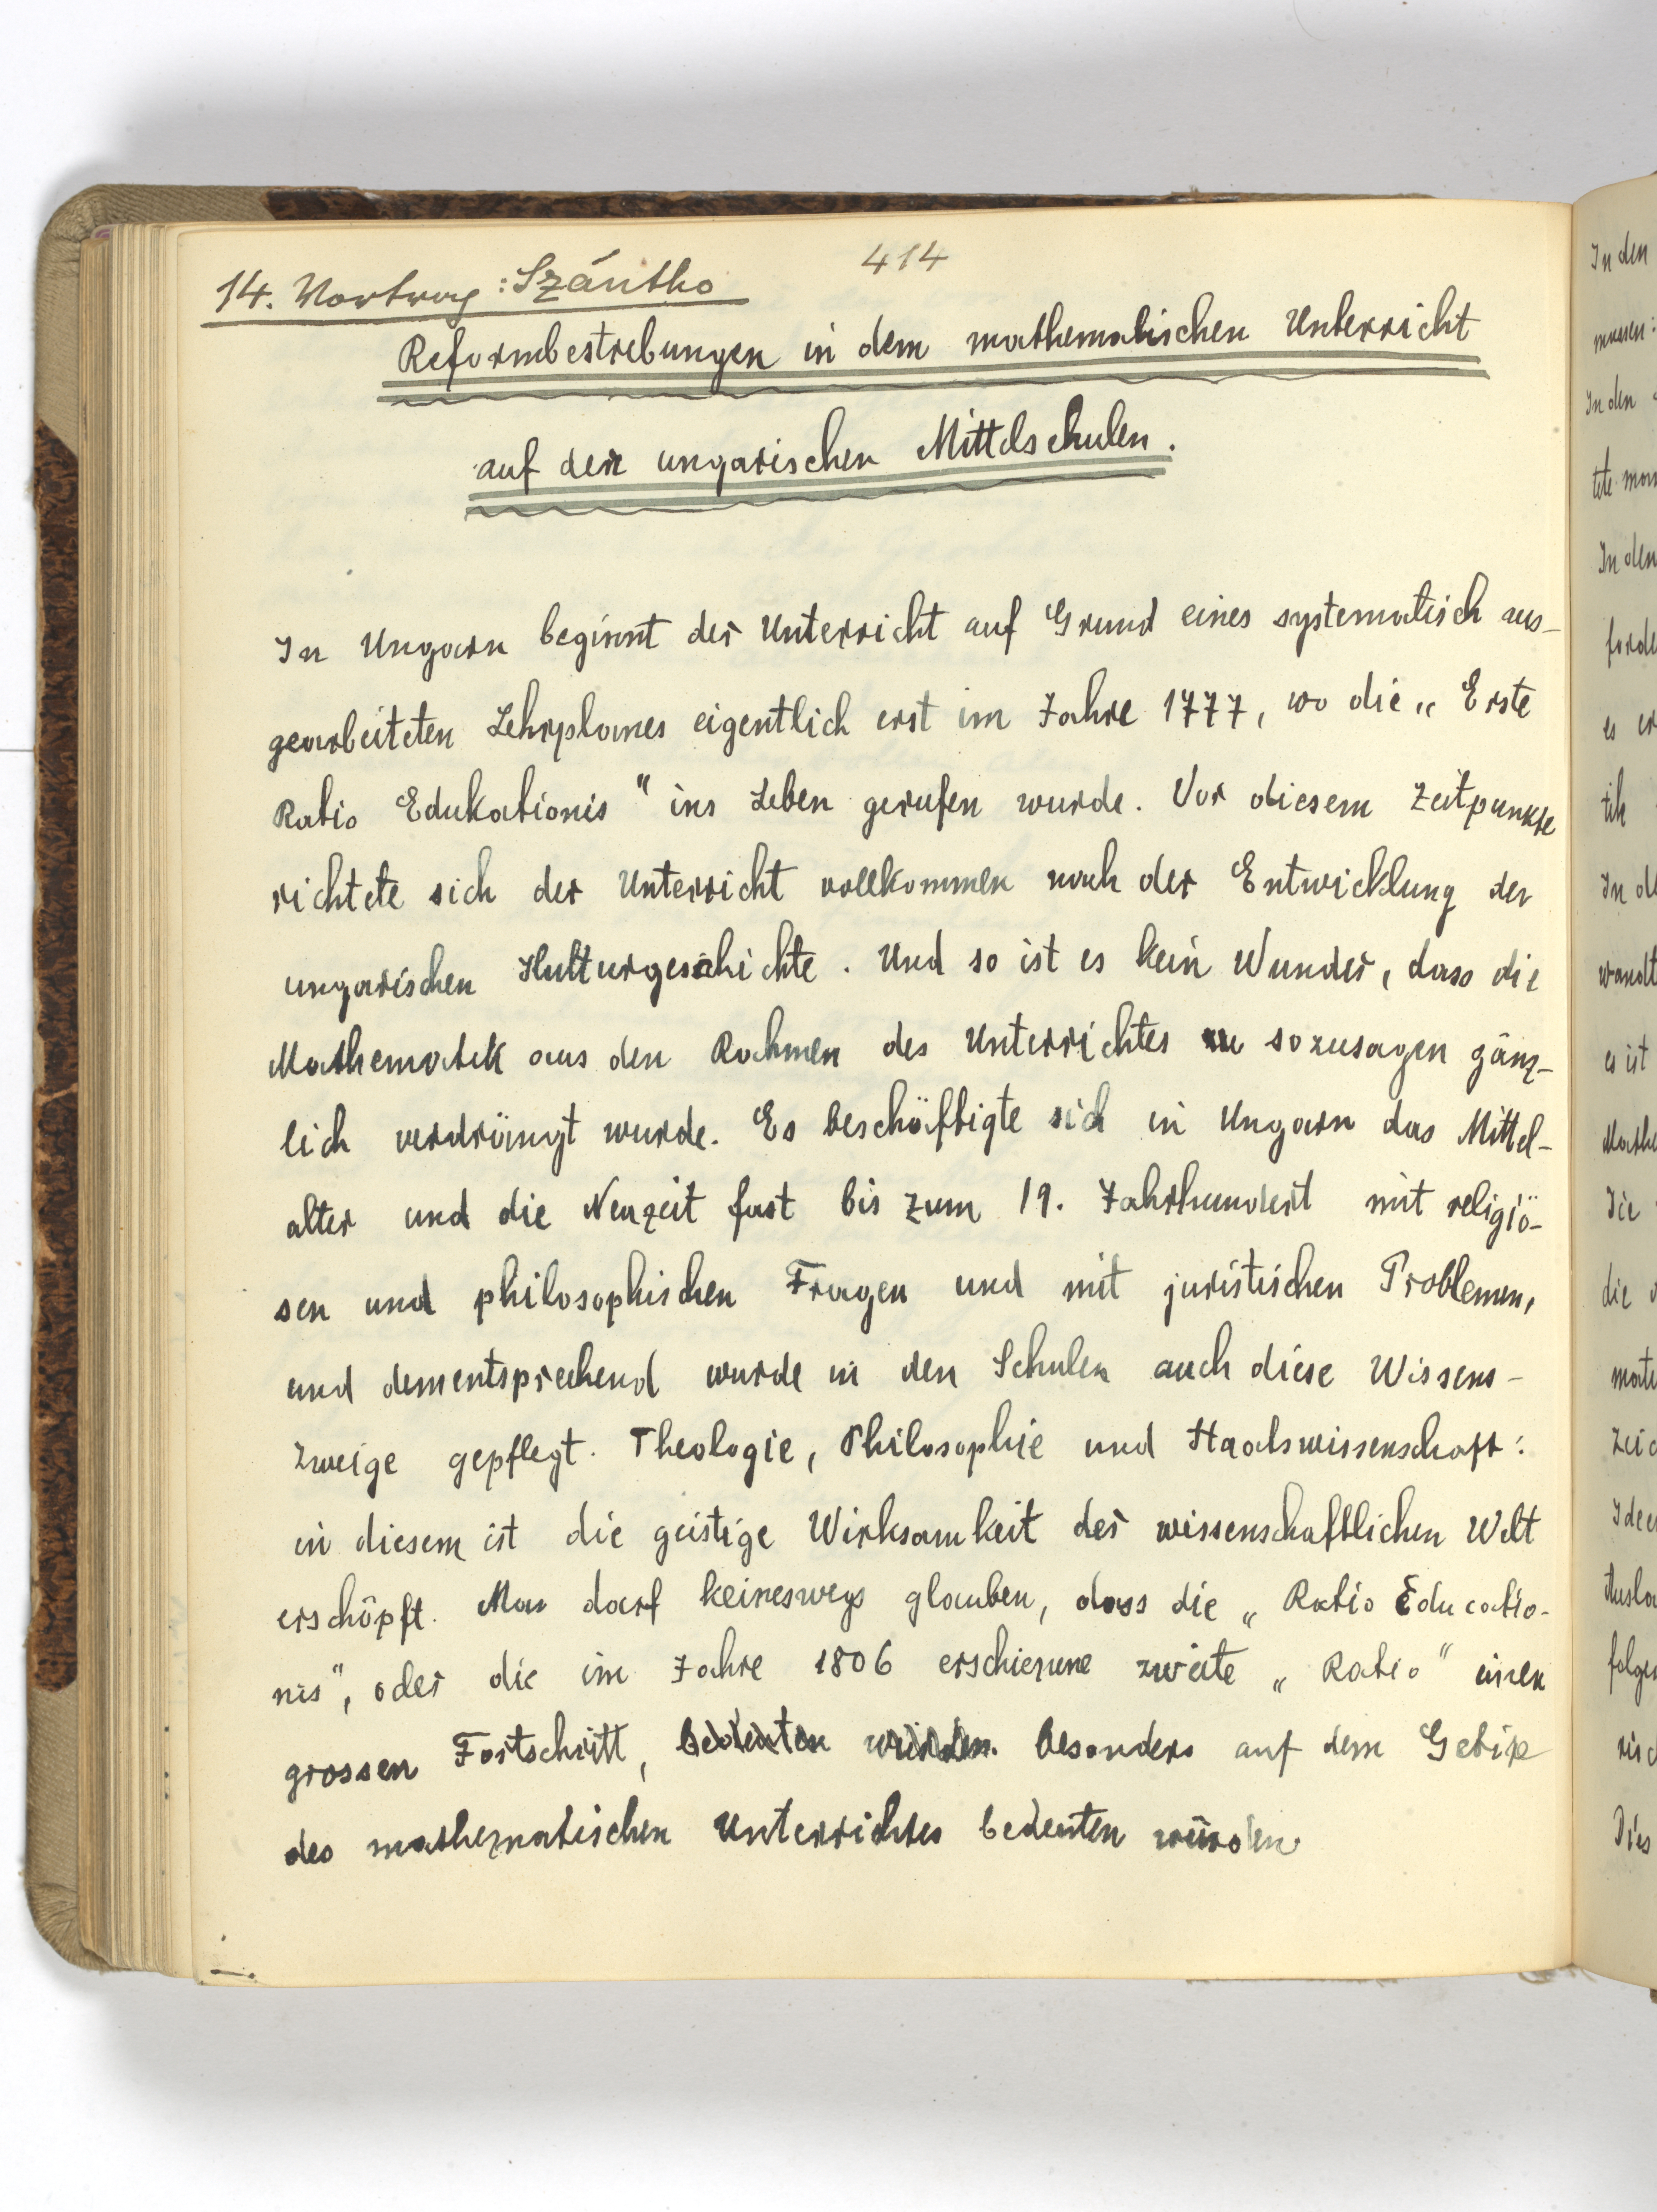 414
14. Vortrag: Szántho
Reformbestrebungen in dem mathematischen Unterricht
auf den ungarischen Mittelschulen.
In Ungarn beginnt der Unterricht auf Grund eines systematisch aus-
gearbeiteten Lehrplanes eigentlich erst im Jahre 1777, wo die „ Erste
Ratio Edukationis " ins Leben gerufen wurde. Vor diesem Zeitpunkte
richtete sich der Unterricht vollkommen nach der Entwicklung der
ungarischen Kulturgeschichte. Und so ist es kein Wunder, dass die
Mathematik aus den Rahmen des Unterrichtes sozusagen gänz-
lich verdrängt wurde. Es beschäftigte sich in Ungarn das Mittel-
alter und die Neuzeit fast bis zum 19. Jahrhundert mit religiö-
sen und philosophischen Fragen und mit juristischen Problemen,
und dementsprechend wurde in den Schulen auch diese Wissens-
zweige gepflegt. Theologie, Philosophie und Staatswissenschaft:
in diesem ist die geistige Wirksamkeit der wissenschaftlichen Welt
erschöpft. Man darf keineswegs glauben, dass die „ Ratio Educatio-
nis", oder die im Jahre 1806 erschienene zweite „ Ratio" einen
grossen Fortschritt, bedeuten würden. besonders auf dem Gebiete
des mathematischen Unterrichtes bedeuten würden
In den
In den
In den
forde
es er
tik
In de
wandt
es ist
Mathe
die
mate
folgen
Dies